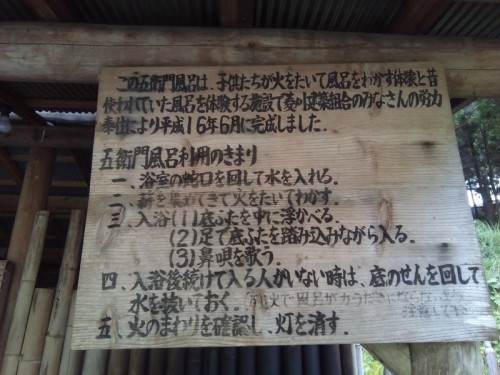 この五衛門風呂は、子供たちが火をたいて風呂をわかす体験と昔
使われていた風呂を体験する施設で秦川建築組合のみなさんの労力
奉仕により平成16年6月に完成しました.
五衛門風呂利用のきまり
一、浴室の蛇口を回して水を入れる.
二、薪を集めてきて火をたいてわかす.
三、入浴(1)底ぶたを中に浮かべる.
(2)足で底ぶたを踏み込みながら入る.
(3)鼻唄を歌う.
四、入浴後続けて入る人がいない時は、底のせんを回して
水を抜いておく.
五、火のまわりを確認し、灯を消す.